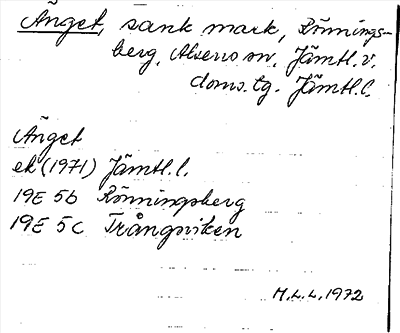 Änget, sank mark, Rönnings-
berg, Alsens sn, Jämtl. v.
doms. tg. Jämtl. l.
Änget
ek (1971) Jämtl. l.
19E 5b Rönningsberg
19E 5c Trångviken
M.L.L. 1972